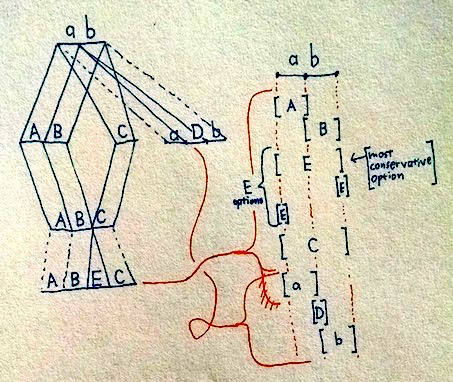 a b
A B C a D b
A B C
A B E C
a b
[A]
[B]
[E]
[E]
E options
[E]
[most conservative option]
[C]
[a]
[D]
[b]